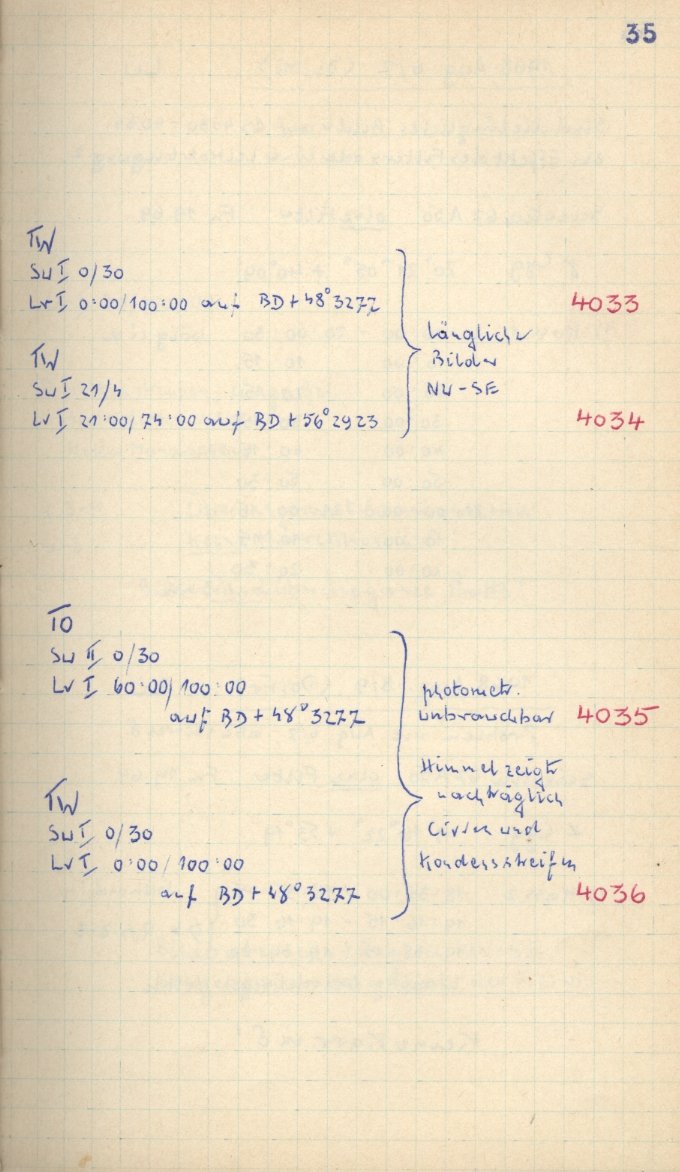 35
TW
Sw I 0/30
Lv I 0:00/100:00 auf BD+48°3277
4033
TW
Sw I 21/4
Lv I 21:00/74:00 auf BD+56°2923
4034
längliche
Bilder
NW-SE
TO
Sw II 0/30
Lv I 60:00/100:00
auf BD+48°3277
photometr.
unbrauchbar 4035
Himmel zeigt
nachträglich
Cirren und
Kondensstreifen
TW
Sw I 0/30
Lv I 0:00/100:00
auf BD+48°3277
4036